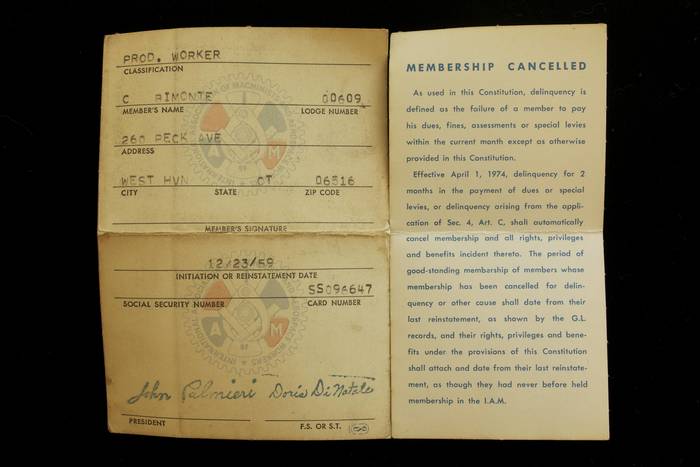 PROD. WORKER
CLASSIFICATION
C RIMONTE 00609
MEMBER'S NAME LODGE NUMBER
260 PECK AVE
ADDRESS
WEST HVN CT 06516
CITY STATE ZIP CODE
MEMBER'S SIGNATURE
12/23/59
INITIATION OR REINSTATEMENT DATE
SS096647
SOCIAL SECURITY NUMBER CARD NUMBER
John Palmieri Doris DiNatale
PRESIDENT F.S. OR S.T.
MEMBERSHIP CANCELLED
As used in this Constitution, delinquency is
defined as the failure of a member to pay
his dues, fines, assessments or special levies
within the current month except as otherwise
provided in this Constitution.
Effective April 1, 1974, delinquency for 2
months in the payment of dues or special
levies, or delinquency arising from the appli-
cation of Sec. 4, Art. C, shall automatically
cancel membership and all rights, privileges
and benefits incident thereto. The period of
good-standing membership of members whose
membership has been cancelled for delin-
quency or other cause shall date from their
last reinstatement, as shown by the G.L.
records, and their rights, privileges and bene-
fits under the provisions of this Constitution
shall attach and date from their last reinstate-
ment, as though they had never before held
membership in the I.A.M.